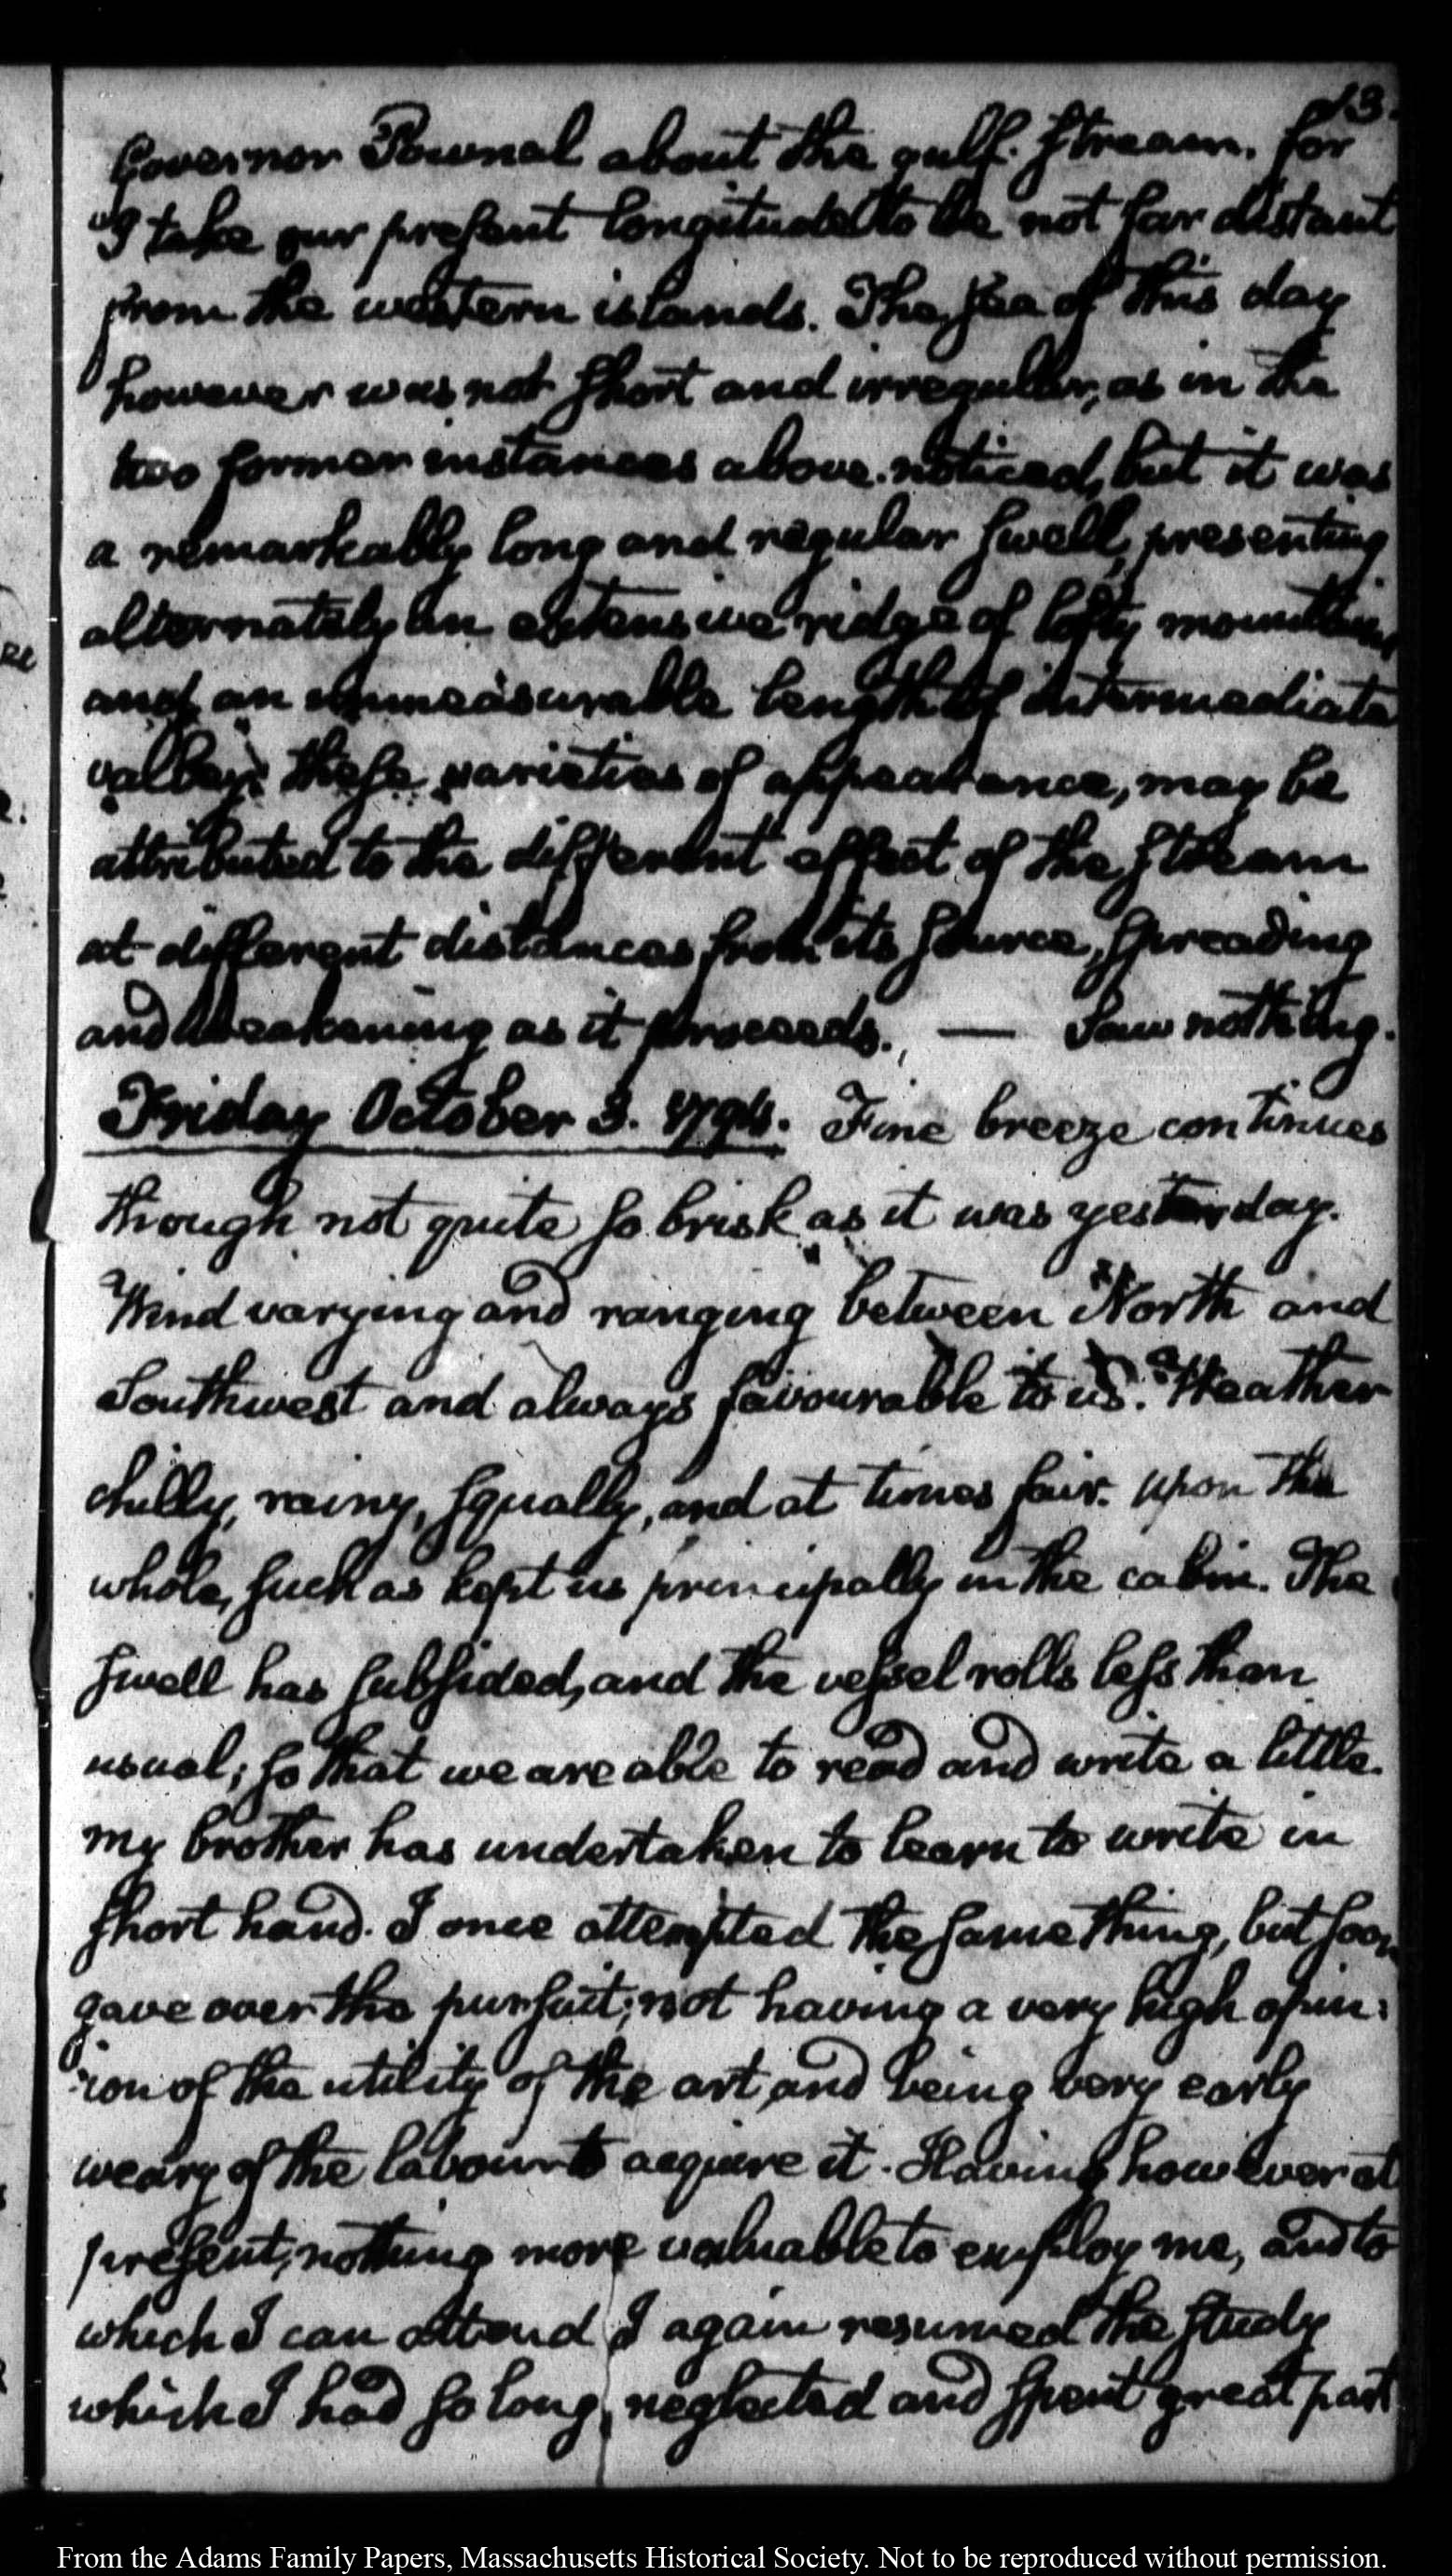 13.
Governor Pownal about the gulf. stream. for
I take our present longitude to be not far distant
from the western islands. The sea of this day
however was not short and irregular, as in the
two former instances above noticed, but it was
a remarkably long and regular swell, presenting
alternately an extensive ridge of lofty mountains
and an immeasurable length of intermediate
valley. these varieties of appearance, may be
attributed to the different effect of the stream
at different distances from its source, spreading
and weakening as it proceeds. — Saw nothing.
Friday October 3. 1794. Fine breeze continues
though not quite so brisk as it was yesterday.
Wind varying and ranging between North and
Southwest and always favourable to us. Weather
chilly, rainy, squally, and at times fair. upon the
whole, such as kept us principally in the cabin. The
swell has subsided, and the vessel rolls less than
usual; so that we are able to read and write a little.
my brother has undertaken to learn to write in
short hand. I once attempted the same thing, but soon
gave over the pursuit; not having a very high opin:
:ion of the utility of the art, and being very early
weary of the labour to acquire it. Having however at
present, nothing more valuable to employ me, and to
which I can attend I again resumed the study
which I had so long neglected and spent great part
From the Adams Family Papers, Massachusetts Historical Society. Not to be reproduced without permission.